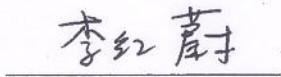 李红蔚